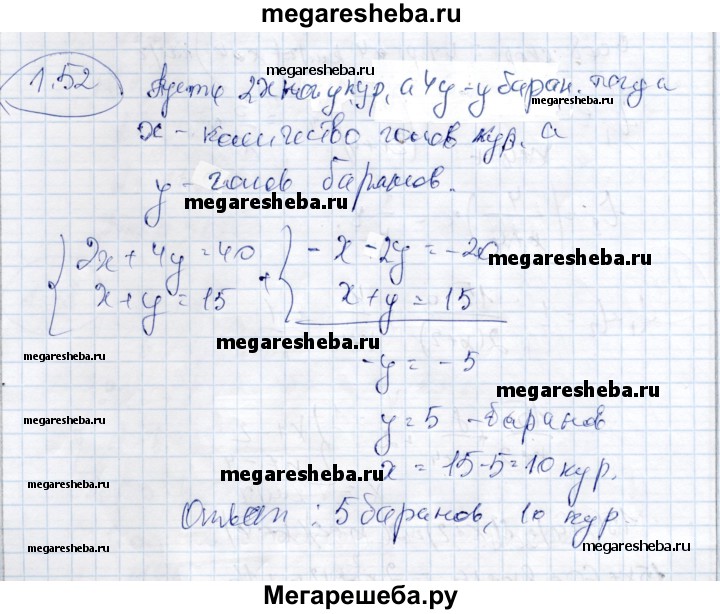 megaresheba.ru
1.52 Пусть 2x ног у кур, а 4y - у баран. тогда
x - количество голов кур. а
y - голов баранов.
2x + 4y = 40 - x - 2y = -20
x + y = 15 + x + y = 15
- y = - 5
y = 5 - баранов
x = 15 - 5 = 10 кур.
Ответ : 5 баранов, 10 кур.
megaresheba.ru
megaresheba.ru
megaresheba.ru
megaresheba.ru
megaresheba.ru
megaresheba.ru
megaresheba.ru
megaresheba.ru
megaresheba.ru
megaresheba.ru
megaresheba.ru
megaresheba.ru
Мегарешеба.ру